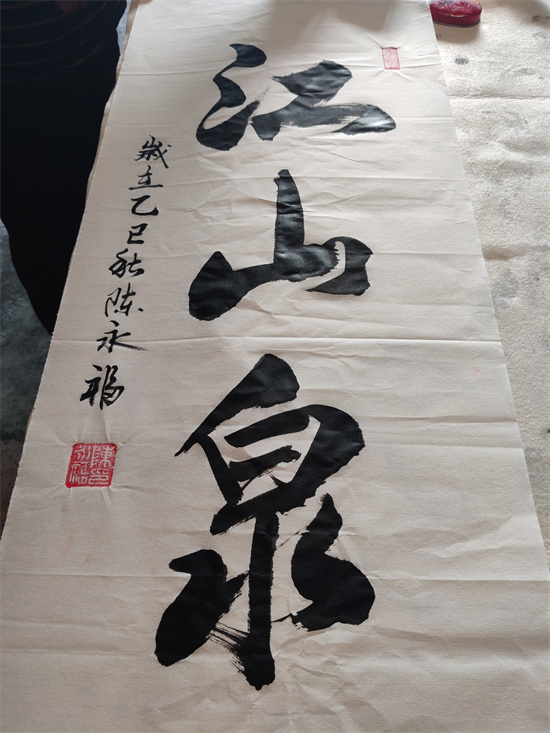 江山泉
歲在乙巳秋陈永福